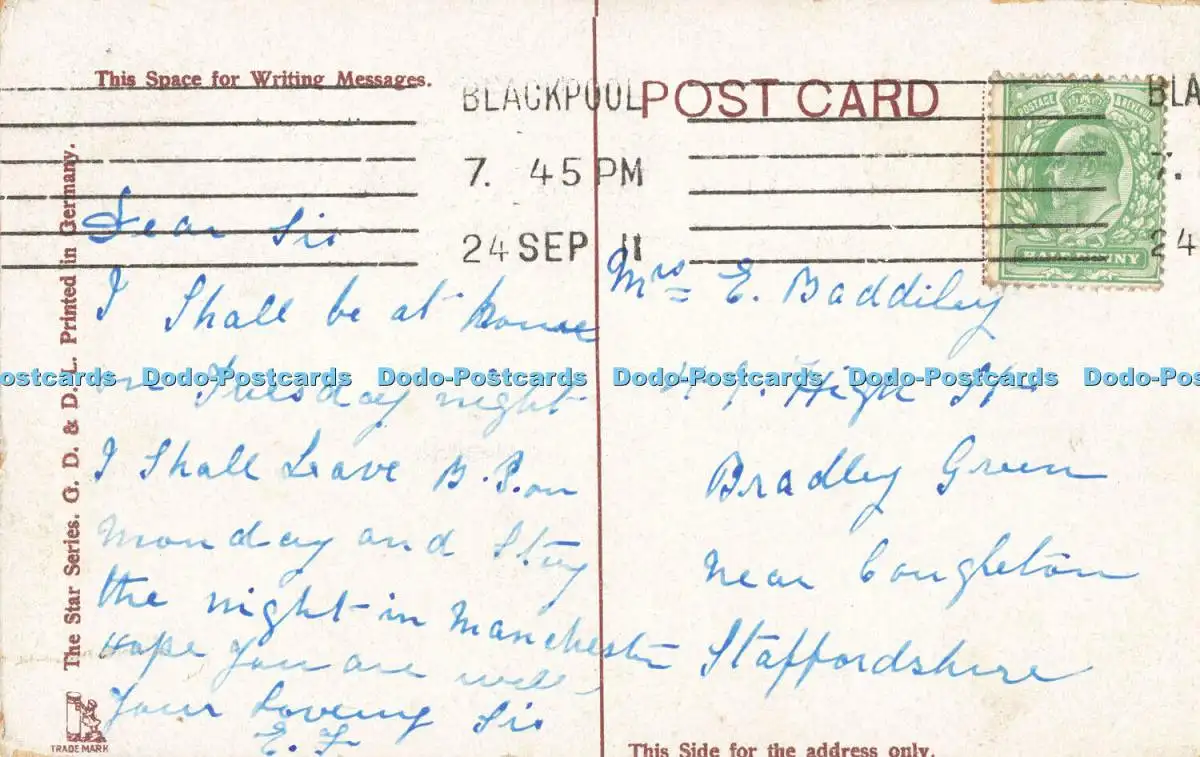 This Space for Writing Messages.
BLACKPOOL
7. 45 PM
24 SEP 11
POST CARD
BLA
7.
24
POSTAGE REVENUE
HALFPENNY
The Star Series. G. D. & D. L. Printed in Germany.
Dear Sis
I Shall be at home
on Tuesday night
I Shall Leave B.P. on
Monday and Stay
the night in Manchester
Hope you are well
Your Loving Sis
E. F
Mrs E. Baddiley
High St
Bradley Green
Near Congleton
Staffordshire
ostcards Dodo-Postcards Dodo-Postcards Dodo-Postcards Dodo-Postcards Dodo-Pos
TRADE MARK
This Side for the address only.